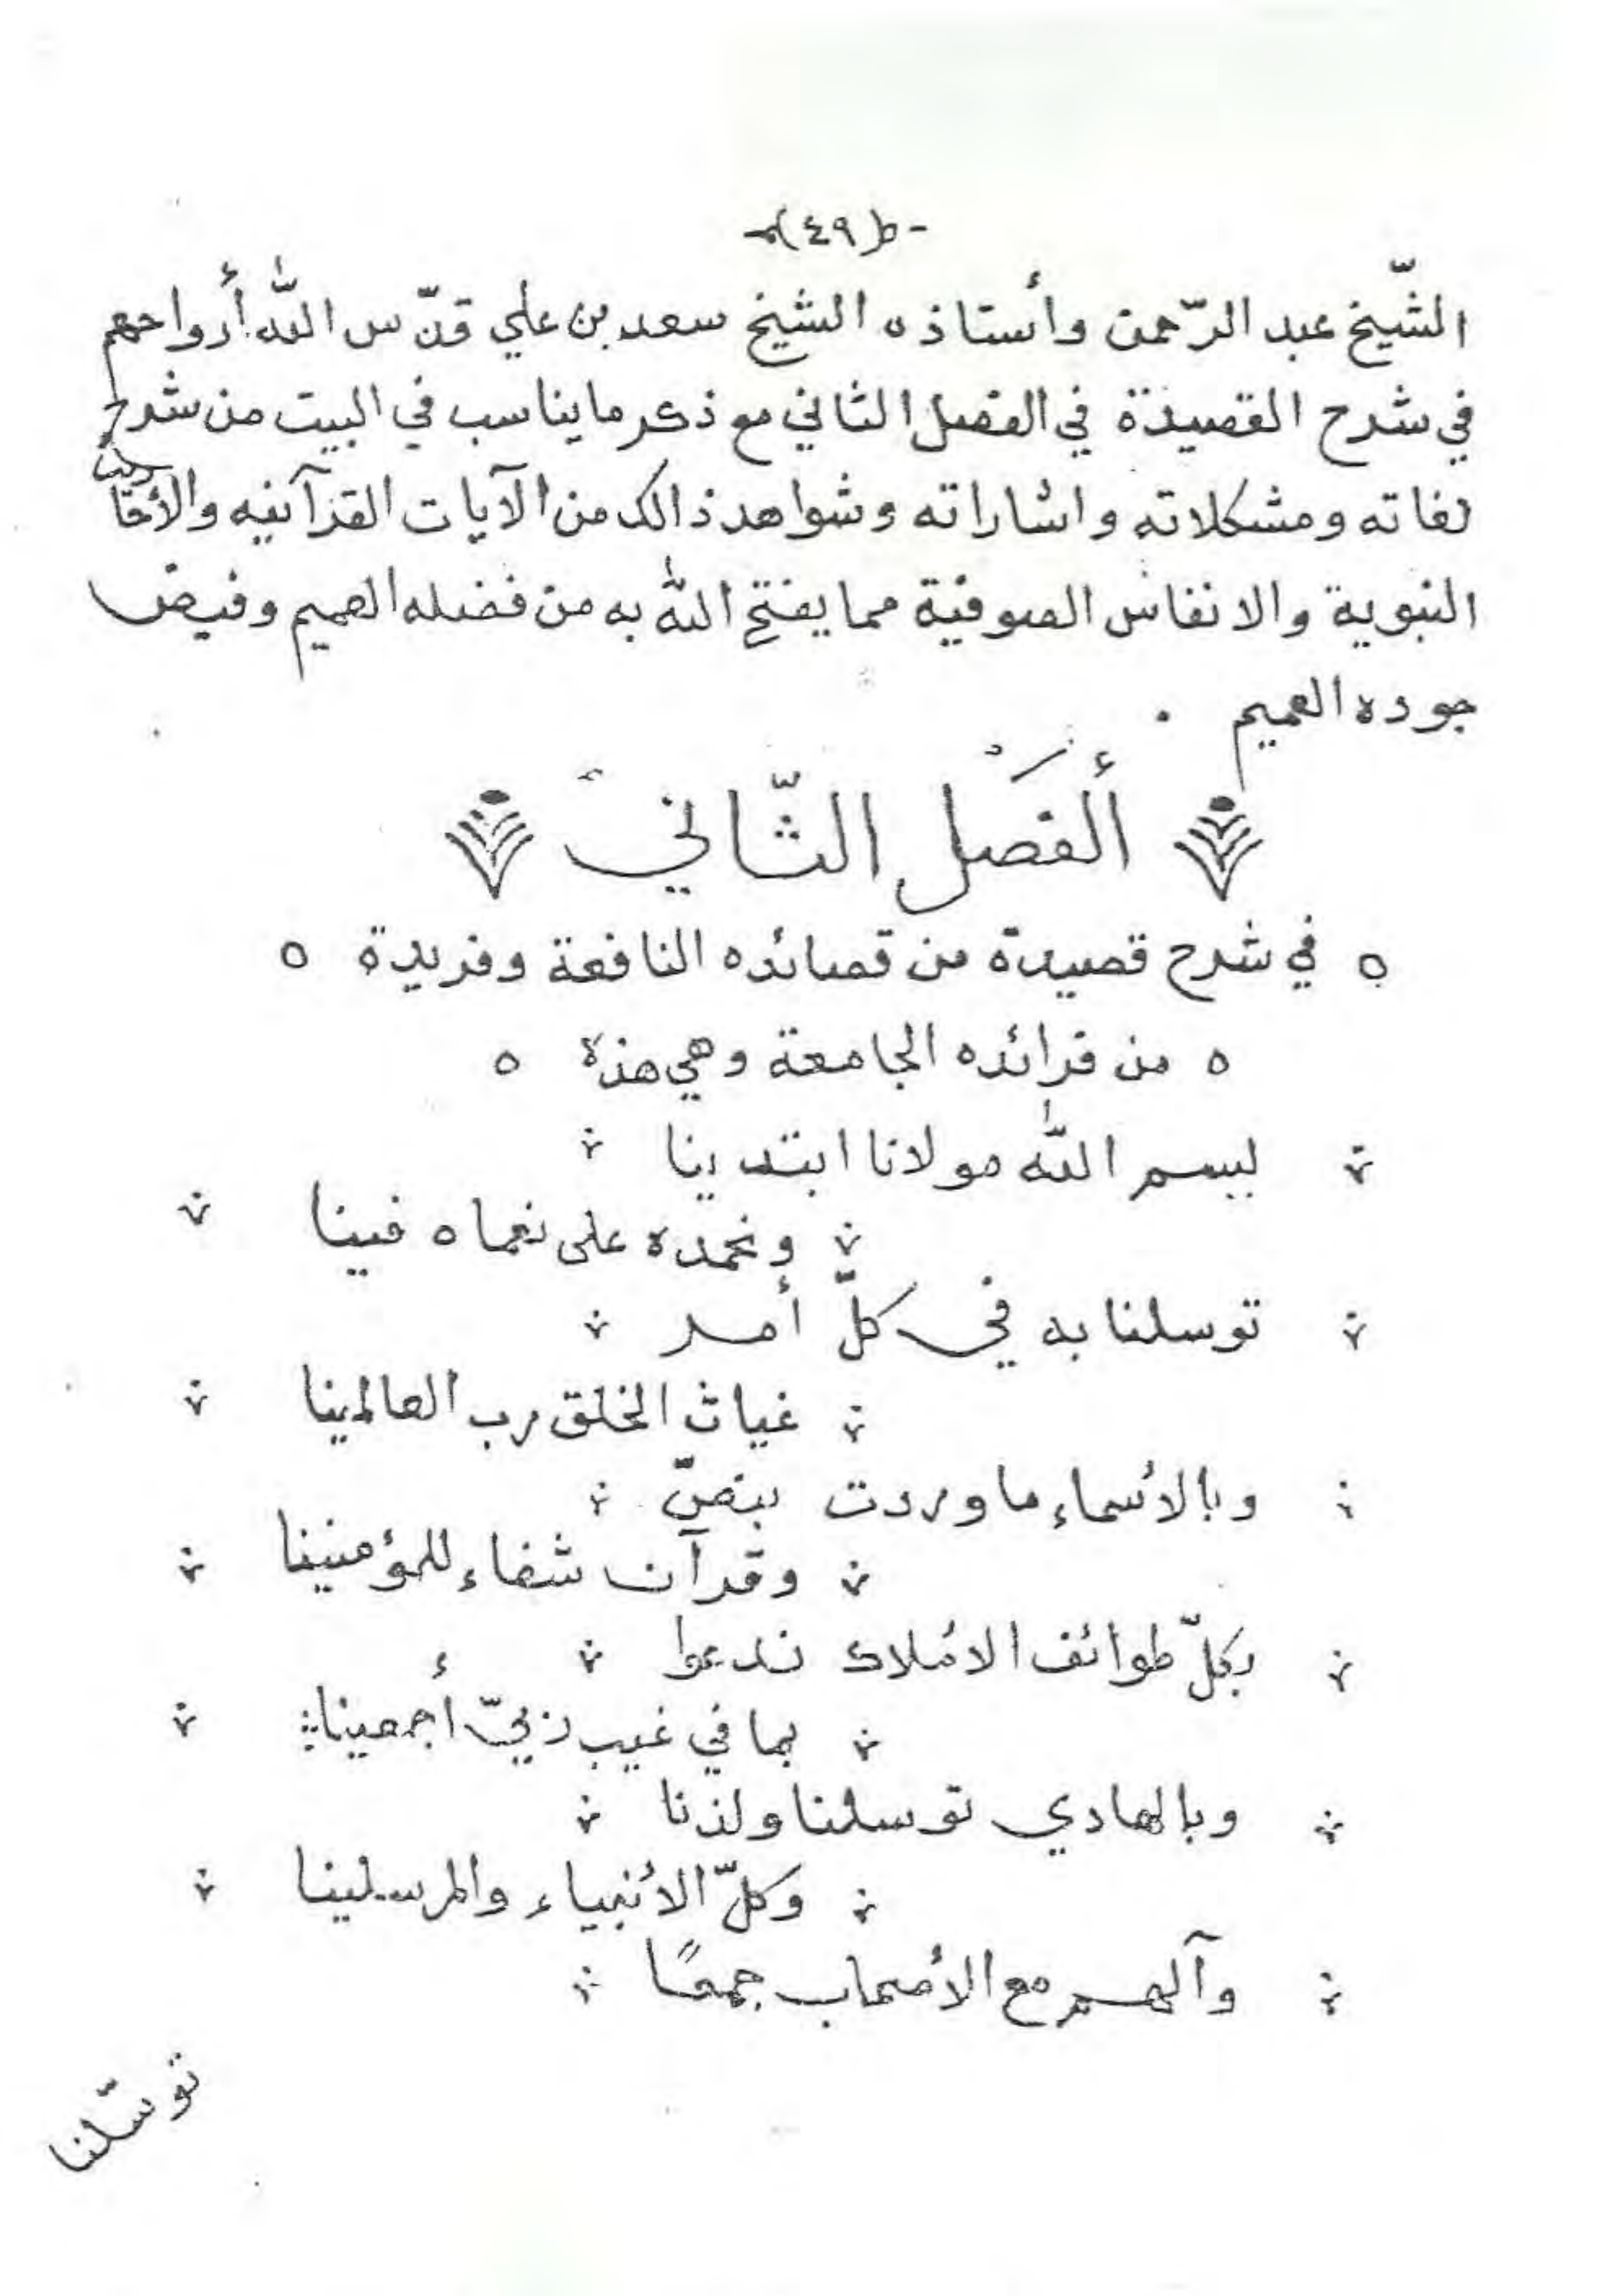 -(٤٩)-
الشّيخ عبد الرّحمن وأستاذه الشيخ سعد بن علي قدّس اللّٰه أرواحهم
في شرح القصيدة في الفصل الثاني مع ذكر ما يناسب في البيت من شرح
لغاته ومشكلاته واشاراته وشواهد ذالك من الآيات القرآنيه والأحاديث
النبوية والانفاس الصوفية مما يفتح اللّٰه به من فضله العميم وفيض
جوده العميم .
ألفَصل الثّاني
ه في شرح قصيدة من قصائده النافعة وفريدة ه
ه من فرائده الجامعة وهي هذة ه
ببسم اللّٰه مولانا ابتدينا
ونحمده على نعماه فينا
توسلنا به في كلّ أمر
غياث الخلق رب العالمينا
وبالأسماء ما وردت بنصّ
وقرآن شفاء للمؤمنينا
بكلّ طوائف الأملاك ندعوا
بما في غيب ربيّ أجمعينا
وبالهادي توسلنا ولذنا
وكلّ الأنبياء والمرسلينا
وآلهم مع الأصحاب جمعًا
توسّلنا